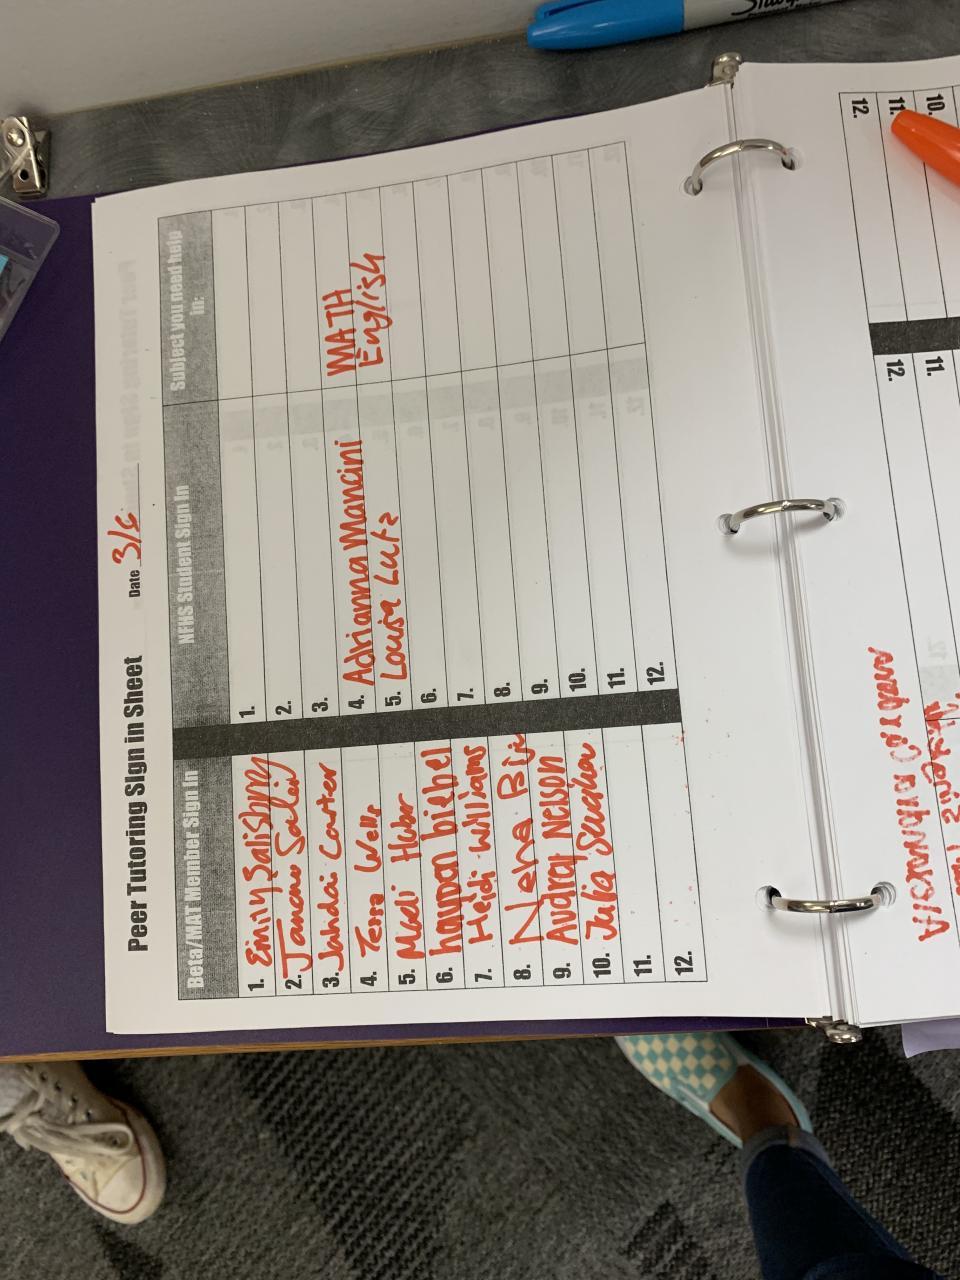 Peer Tutoring Sign in Sheet Date 3/6
Beta/MAT Member Sign In NFHS Student Sign In Subject you need help in:
1. Emily 1.
2. 2.
3. Jahdai Courter 3.
4. Tessa Wells 4. Adrianna Mancini MATH
5. Madi Huber 5. Louisa Lutz English
6. 6.
7. Heidi Williams 7.
8. Neha 8.
9. Audrey Nelson 9.
10. Julia 10.
11. 11.
12. 12.
Sharpie
10.
11.
12.
11.
12.